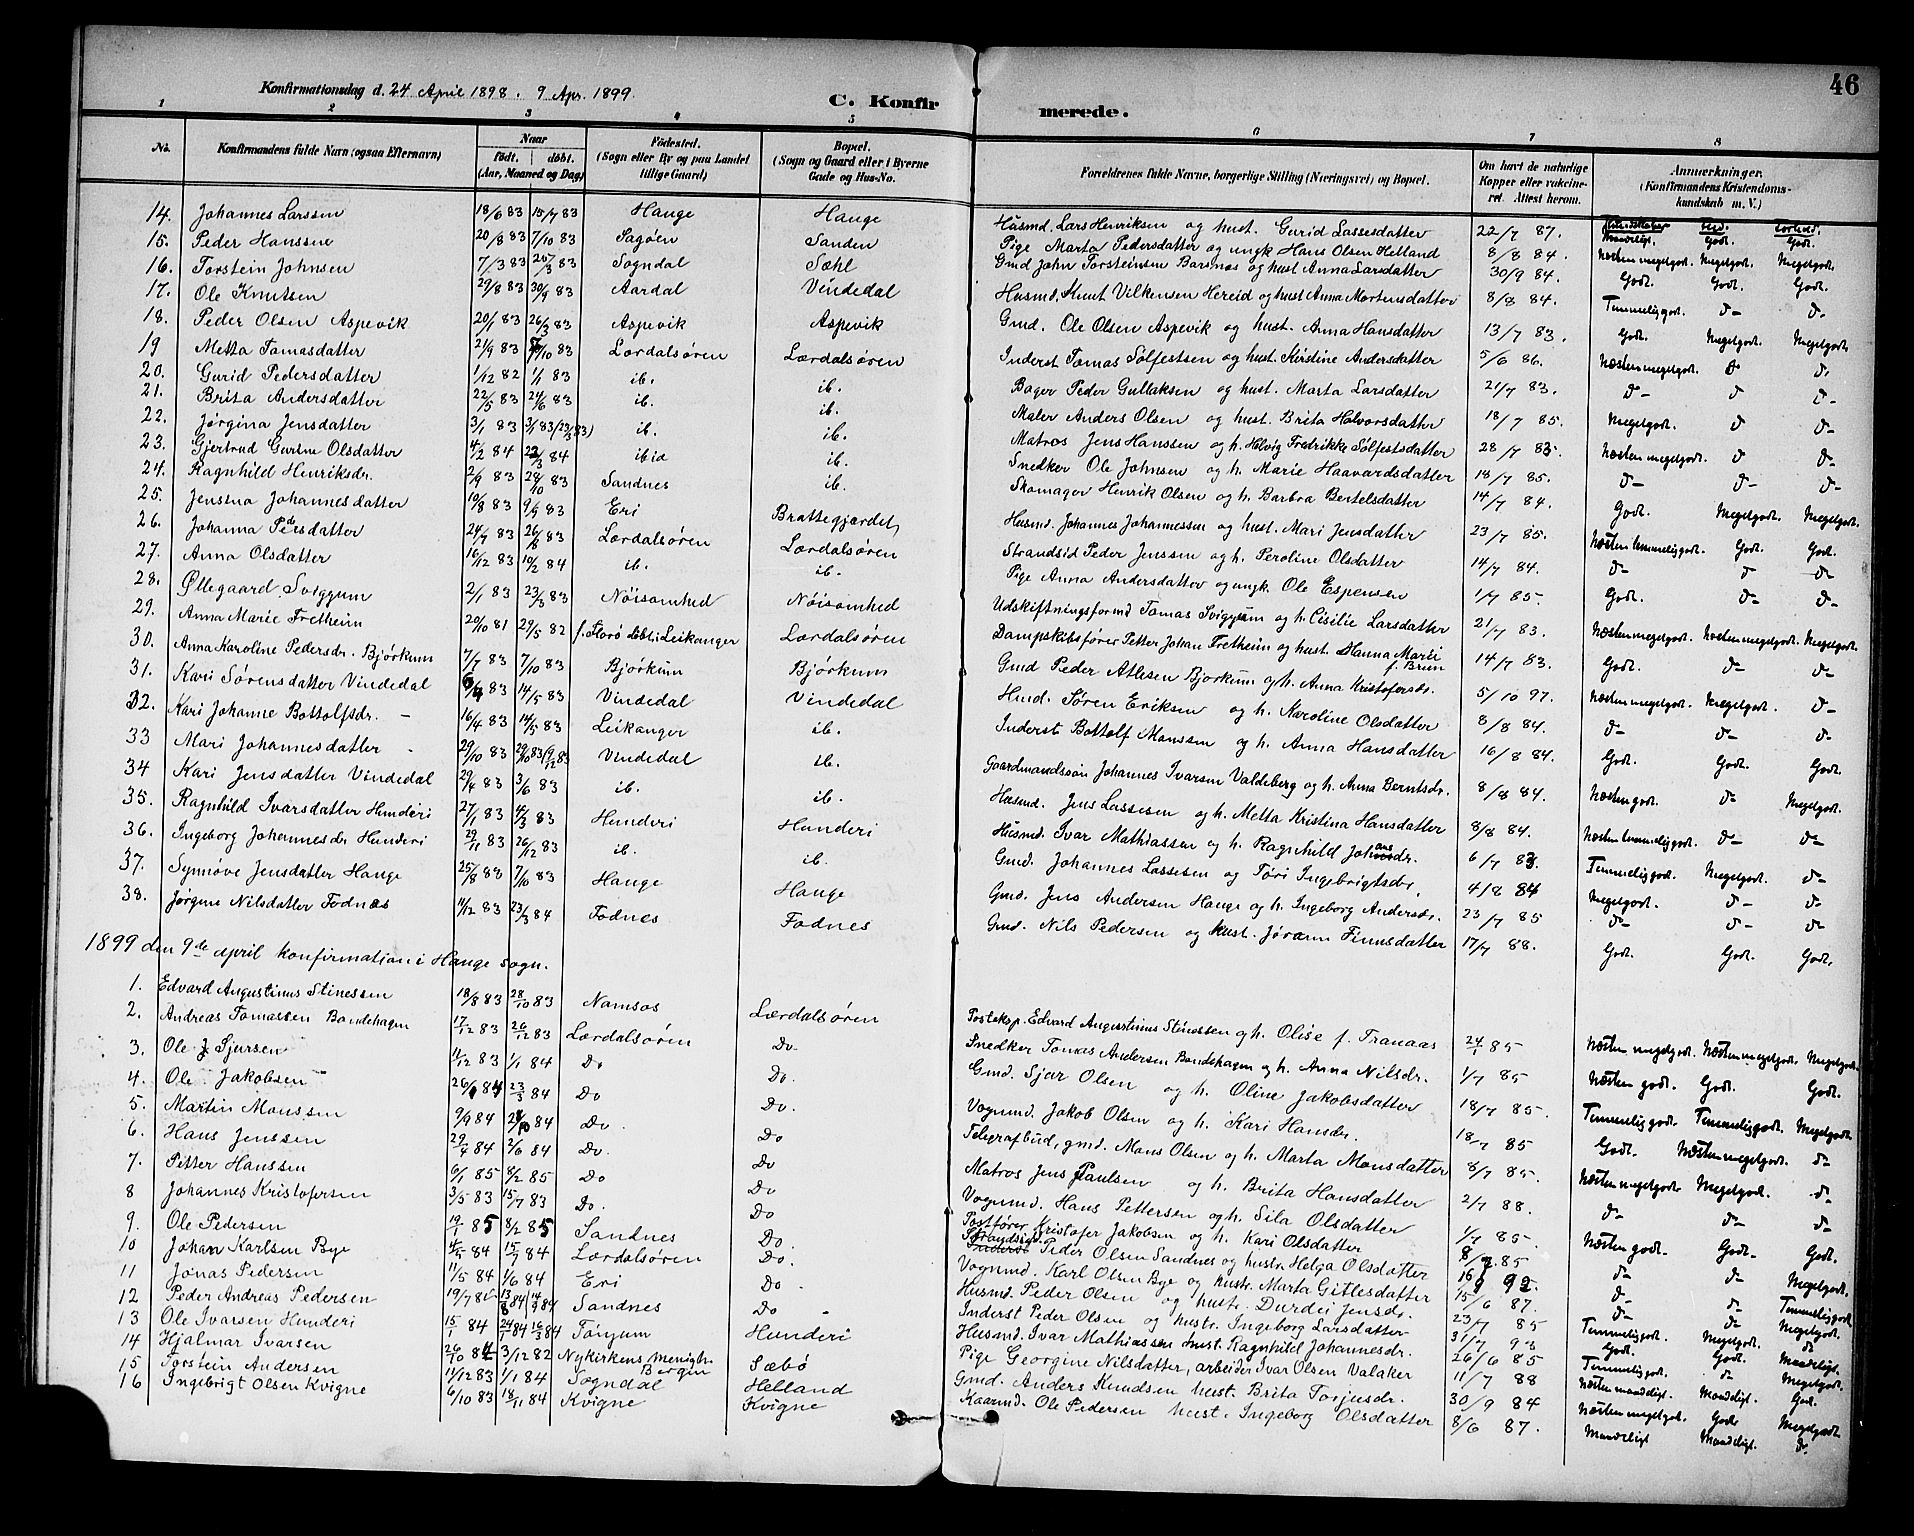 46
Konfirmationsdag d. 24 April 1898. 9 Apr. 1899.
C. Konfirmerede.
1 2 3 4 5 6 7 8
No. Konfirmandens fulde Navn (ogsaa Efternavn) Naar født. døbt. (Aar, Maaned og Dag) Fødested. (Sogn eller By og paa Landet tillige Gaard) Bopæl. (Sogn og Gaard eller i Byerne Gade og Hus-No. Forældrenes fulde Navne, borgerlige Stilling (Næringsvei) og Bopæl. Om havt de naturlige Kopper eller vakcineret. Attest herom. Anmærkninger. (Konfirmandens Kristendomskundskab m. V.)
14. Johannes Larssen 18/6 83 15/7 83 Hauge Hauge Husmd. Lars Henriksen og hust. Gurid Lassesdatter 22/7 87. Maadeligt. Godt. Godt.
15. Peder Hanssen 20/8 83 7/10 83 Sagøen Sanden Pige Marta Pedersdatter og ungk. Hans Olsen Helland 8/8 84. Næsten megetgodt. Megetgodt. Megetgodt.
16. Torstein Johnsen 7/3 83 20/3 83 Sogndal Sæhl Gmd John Torsteinsen Barsnæs og hust Anna Larsdatter 30/9 84. Godt. Godt. Godt.
17. Ole Knutsen 29/8 83 30/9 83 Aardal Vindedal Husmd. Knut Vilkensen Hereid og hust Anna Mortensdatter 8/8 84. Temmeliggodt. do do
18. Peder Olsen Aspevik 20/1 83 26/3 83 Aspevik Aspevik Gmd. Ole Olsen Aspevik og hust. Anna Hansdatter 13/7 83. Godt. Megetgodt. Megetgodt.
19 Metta Tomasdatter 21/9 83 /10 83 Lærdalsøren Lærdalsøren Inderst Tomas Sølfestsen og hust. Kirstine Andersdatter 5/6 86. Næstenmegetgodt. do do
20. Gurid Pedersdatter 1/12 82 1/1 83 ib. ib. Bager Peder Gullaksen og hust. Marta Larsdatter 21/7 83. do do do
21. Brita Andersdatter 22/5 83 24/6 83 ib. ib. Maler Anders Olsen og hust. Brita Halvorsdatter 18/7 85. Megetgodt. do do
22. Jørgina Jensdatter 3/1 83 3/1 83 (23/3 83) ib. ib. Matros Jens Hanssen og h. Helvig Fredrikke Sølfestsdatter 28/7 83. Næsten megetgodt. do do
23. Gjertrud Gurine Olsdatter 4/2 84 23/3 84 ibid ib. Snedker Ole Johnsen og h. Marie Haavardsdatter 18/7 85. do do do
24. Ragnhild Henriksdr. 2/9 83 28/10 83 Sandnes ib. Skomager Henrik Olsen og h. Barbra Bertelsdatter 14/7 84. Godt. Megetgodt. Megetgodt.
25. Jensina Johannesdatter 10/8 83 9/9 83 Eri Brattegjerdet, Husmd. Johannes Johannessen og hust. Mari Jensdatter 23/7 85. Næsten temmeliggodt. Godt. Godt.
26. Johanna Pedersdatter 24/7 83 26/8 83 Lærdalsøren Lærdalsøren Strandsid Peder Jenssen og h. Peroline Olsdatter 14/7 84. do do do
27. Anna Olsdatter 16/12 83 10/2 84 ib. ib. Pige Anna Andersdatter og ungk. Ole Espensen 1/7 85. Godt. do do
28. Øllegaard Sviggum 2/1 83 23/3 83 Nøisomhed Nøisomhed Udskiftningsformd Tomas Sviggum og h. Cisilie Larsdatter 21/7 83. Næstenmegetgodt. Næstenmegetgodt. Megetgodt.
29. Anna Marie Fretheim 20/10 81 29/5 82 f. Florø døbt i Leikanger Lærdalsøren Dampskibsfører Petter Johan Fretheim og hust. Hanna Marie f. Brun 14/7 83. Godt. do do
30. Anna Karoline Pedersdr. Bjørkum 7/7 83 7/10 83 Bjørkum Bjørkum Gmd Peder Atlesen Bjørkum og h. Anna Kristofersdr. 5/10 97. Næstenmegetgodt. Megetgodt. do
31. Kari Sørensdatter Vindedal 83 14/5 83 Vindedal Vindedal Husd. Søren Eriksen og h. Karoline Olsdatter 8/8 84. do do do
32. Kari Johanne Bottolfsdr. – 16/4 83 14/5 83 Leikanger ib. Inderst Bottolf Monssen og h. Anna Hansdatter 16/8 84. Godt. Godt. Godt.
33 Mari Johannesdatter - 29/10 83 29/10 83 (9/12 83 Vindedal ib. Gaardmandssøn Johannes Ivarsen Valdeberg og h. Anna Berntsdr. 8/8 84. Næsten godt. do Megetgodt.
34 Kari Jensdatter Vindedal 29/4 83 3/6 83 ib. ib. Husmd. Jens Lassesen og h. Metta Kristina Hansdatter 8/8 84. Næsten temmeliggodt. do do
35. Ragnhild Ivarsdatter Hunderi 27/1 83 4/3 83 Hunderi Hunderi Husmd. Ivar Mathiassen og h. Ragnhild Johansdr. 6/7 83. Temmeliggodt. Megetgodt. do
36. Ingeborg Johannesdr Hunderi 29/11 83 26/12 83 ib. ib. Gmd. Johannes Lassesen og Tøri Ingebrigtsdr. 4/8 84 Megetgodt. do do
37. Synnøve Jensdatter Hauge 25/8 83 7/10 83 Hauge Hauge Gmd. Jens Andersen Hauge og h. Ingeborg Andersdr. 23/7 85 do do do
38. Jørgine Nilsdatter Fodnæs 11/12 83 23/3 84 Fodnes Fodnes Gmd. Nils Pedersen og hust. Jørann Finnsdatter 17/7 88. Godt. Godt. Godt.
1899 den 9de april konfirmation i Hauge sogn.
1. Edvard Augustinus Stinessen 18/8 83 28/10 83 Namsos Lærdalsøren Posteksp. Edvard Augustinus Stinessen og h. Olise f. Tranaas 24/1 85 Næsten megetgodt. Næsten megetgodt. Megetgodt
2. Andreas Tomassen Bondehagen 17/12 83 26/12 83 Lærdalsøren Do Snedker Tomas Andersen Bondehagen og h. Anna Nilsdr. 1/7 85 Næsten godt. Godt. Godt.
3. Ole J Sjursen 11/12 83 1/1 84 Do Do. Gmd. Sjur Olsen og h. Oline Jakobsdatter 18/7 85. Temmeliggodt Temmeliggodt. Megetgodt
4. Ole Jakobsen 26/ 84 23/3 84 Do Do. Vognmd. Jakob Olsen og h. Kari Hansdr. 18/7 85 Godt. Næstenmegetgodt. do
5. Martin Monssen 9/9 84 2/10 84 Do. Do Telegrafbud, gmd. Mons Olsen og h. Marta Monsdatter 8/7 85. Næstenmegetgodt Megetgodt. do
6. Hans Jenssen 29/4 84 2/6 84 Do. Do Matros Jens Paulsen og h. Brita Hansdatter 2/7 88. do do do
7. Petter Hanssen 6/1 85 8/2 85 Do Do Vognmd. Hans Pettersen og h. Sila Olsdatter 1/7 85. Næsten godt. Godt. Godt.
8 Johannes Kristofersen 3/5 83 15/7 83 Do. Do Postfører Kristofer Jakobsen og h. Kari Olsdatter 8/ 85 do do Megetgodt.
9. Ole Pedersen 19/1 85 8/2 85 Sandnes Do. Strandsid. Peder Olsen Sandnes og hustr. Helga Olsdatter 16/ 92. do do Temmeliggodt
10 Johan Karlsen Bye 4/5 84 15/7 84 Lærdalsøren Do. Vognmd. Karl Olsen Bye og hustr. Marta Gitlesdatter 15/6 87. do do Megetgodt.
11 Jonas Pedersen 11/5 84 1/6 84 Eri Do. Husmd. Peder Olsen og hustr. Durdei Jensdr. 23/7 85 Temmeliggodt. Megetgodt. do
12 Peder Andreas Pedersen 19/7 84 84 14/9 84 Sandnes Do – Inderst Peder Olsen og hustr. Ingeborg Larsdatter 31/7 93 Godt. Godt. Maadeligt.
13 Ole Ivarsen Hunderi 15/1 84 24/1 84 16/3 84 Tønjum Hunderi Husmd. Ivar Mathiassen hust. Ragnhild Johannesdr. 26/6 85 Temmeligt. do Megetgodt.
14 Hjalmar Ivarsen 26/10 82 3/12 82 Nykirkens Menighe Bergen Sæbø Pige Georgine Nilsdatter, arbeider Ivar Olsen Valaker 11/7 88 Næsten maadeligt. Maadeligt. Godt.
15 Torstein Andersen 11/12 83 1/1 84 Sogndal Helland Gmd. Anders Knudsen hust. Brita Torjusdr. 30/9 84 Næstenmegetgodt. Godt Megetgodt
16 Ingebrigt Olsen Kvigne 6/10 83 18/11 84 Kvigne Kvigne Kaarmd. Ole Pedersen hust. Ingeborg Olsdatter 8/6 87. Maadeligt Maadeligt. do